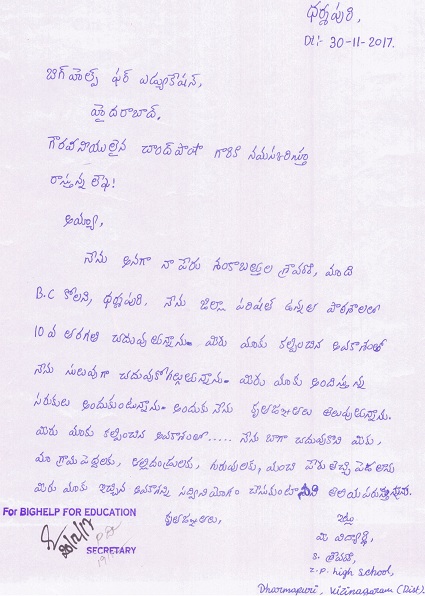 ధర్మపురి,
Dt:- 30-11-2017.
బిగ్ హెల్ప్ ఫర్ ఎడ్యుకేషన్,
హైదరాబాద్,
గౌరవనీయులైన చాంద్ పాషా గారికి నమస్కరిస్తూ
రాస్తున్న లేఖ!
అయ్యా,
నేను అనగా నా పేరు శంకాబత్తుల శ్రావణి, మాది
B.C కోలని, ధర్మపురి. నేను జిల్లా పరిషత్ ఉన్నత పాఠశాలలో
10 వ తరగతి చదువుతున్నాను. మీరు మాకు కల్పించిన అవకాశంతో
నేను సులువుగా చదువుకోగల్గుతున్నాను. మీరు మాకు అందిస్తున్న
సరుకులు అందుకుంటున్నాను. అందుకు నేను కృతజ్ఞతలు తెలుపుతున్నాను.
మీరు మాకు కల్పించిన అవకాశంతో..... నేను బాగా చదువుకొని మీకు,
మా గ్రామ పెద్దలకు, తల్లిదండ్రులకు, గురువులకు, మంచి పేరు తెచ్చి పెడతాను
మీరు మాకు ఇచ్చిన అవకాశాన్ని సద్వినియోగం చేసుకుంటానని తెలియపరుస్తున్నాను.
కృతజ్ఞతలు,
ఇట్లు
మీ విద్యార్థి,
S. శ్రావణి,
Z.P. high school,
Dharmapuri, Vizinagaram (Dist).
For BIGHELP FOR EDUCATION
20/12/17
SECRETARY